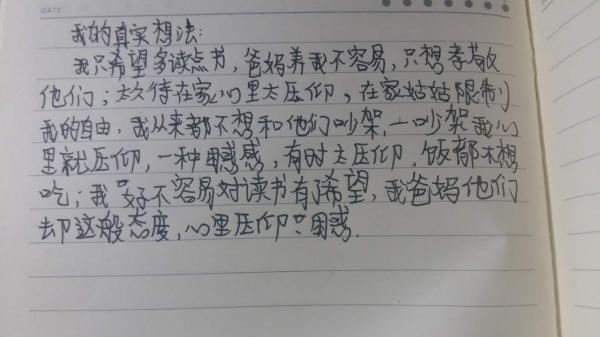 DATE
我的真实想法:
我只希望多读点书,爸妈养我不容易,只想孝敬
他们;太久待在家心里太压仰,在家姑姑限制
我的自由,我从来都不想和他们吵架,一吵架我心
里就压仰,一种困惑感,有时太压仰,饭都不想
吃;我好不容易对读书有了希望,我爸妈他们
却这般态度,心里压仰:困惑.